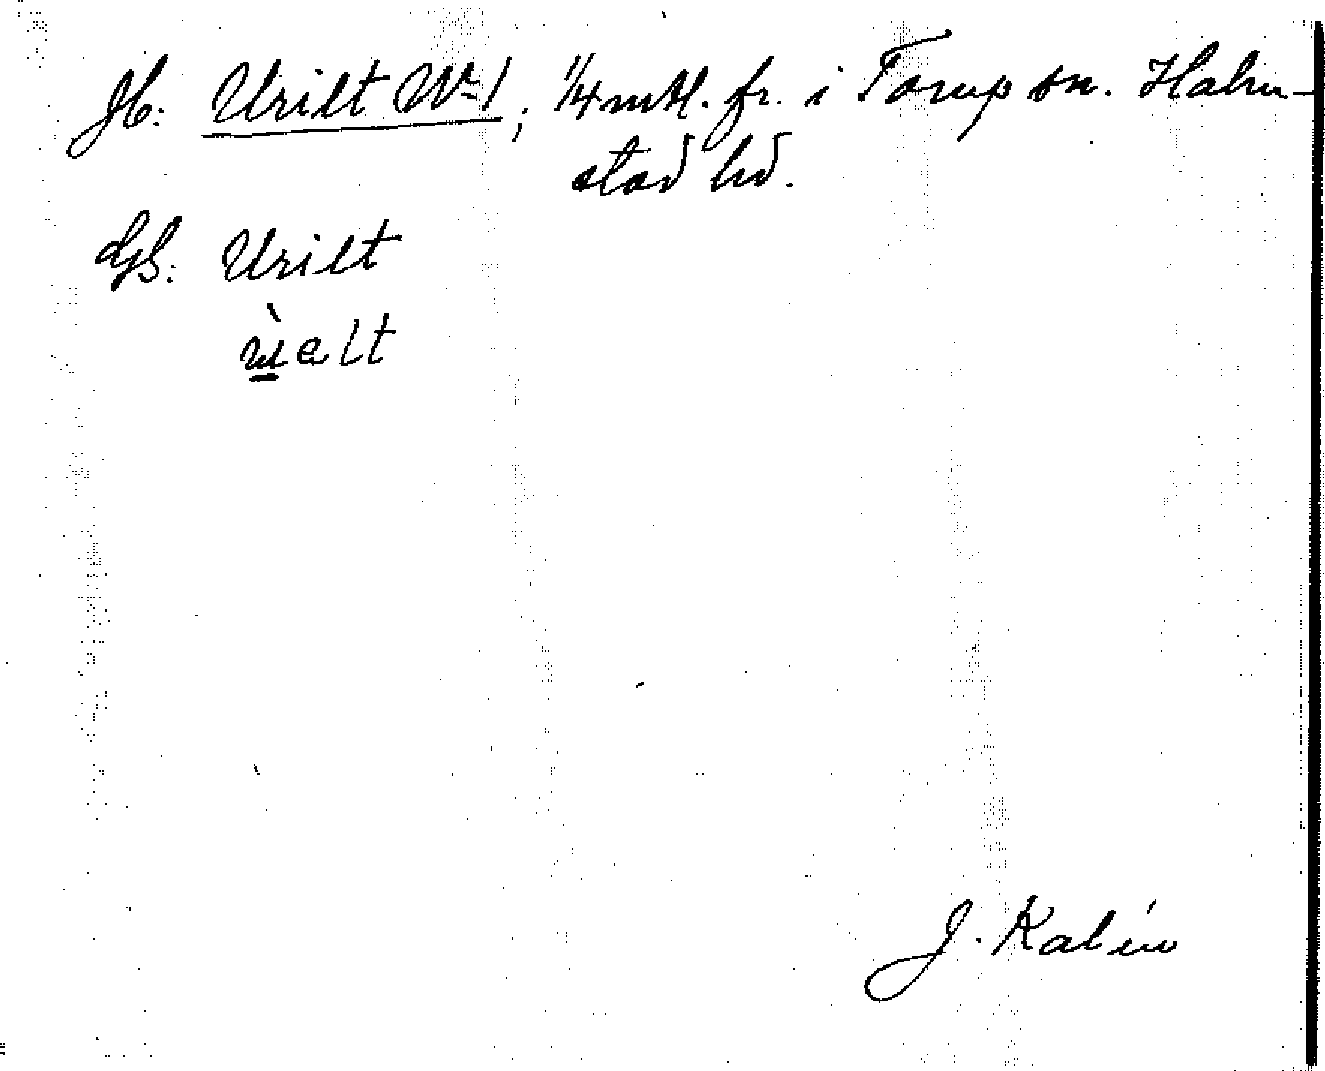 Jb: Urilt No 1, 1/4 mtl. fr. i Torup sn. Halm-
stad hd.
GS: Urilt
J. Kalén